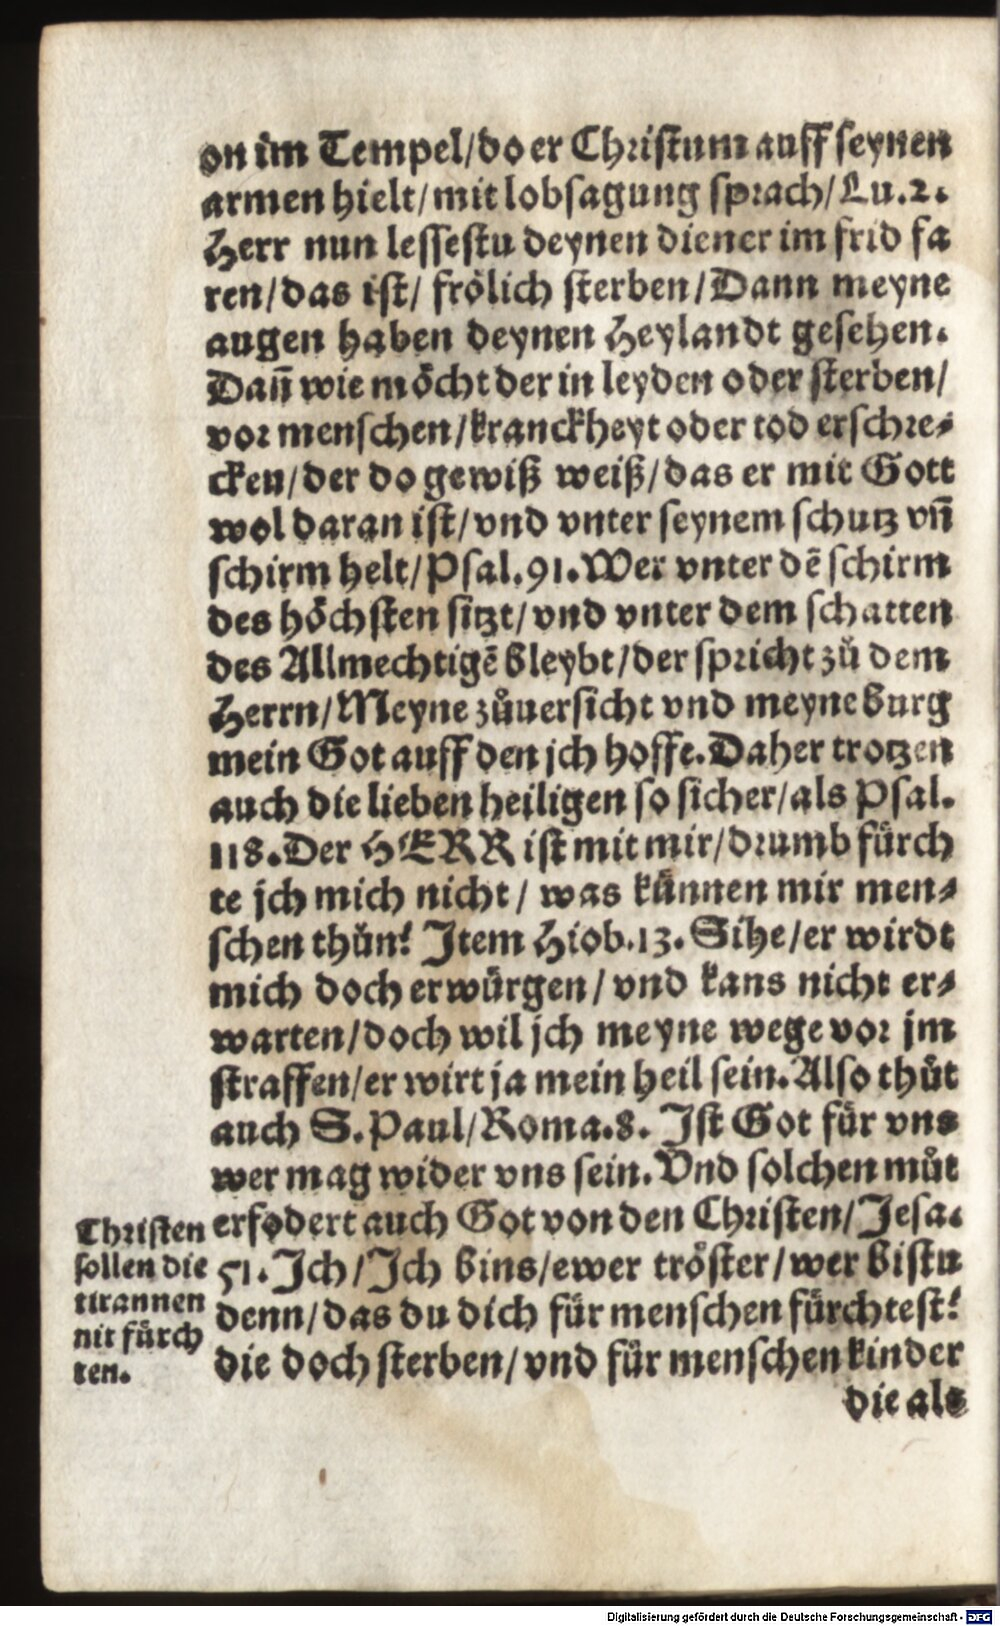 on im Tempel/do er Christum auff seynen
armen hielt/mit lobsagung sprach/Lu.2.
Herr nun lessestu deynen diener im frid fa
ren/das ist/ frölich sterben/Dann meyne
augen haben deynen Heylandt gesehen.
Dañ wie möcht der in leyden oder sterben/
vor menschen/kranckheyt oder tod erschre-
cken/der do gewiß weiß/das er mit Gott
wol daran ist/vnd vnter seynem schutz vñ
schirm helt/Psal.91.Wer vnter dē schirm
des höchsten sitzt/vnd vnter dem schatten
des Allmechtigē bleybt/der spricht zů dem
Herrn/Meyne zůuersicht vnd meyne burg
mein Got auff den jch hoffe.Daher trotzen
auch die lieben heiligen so sicher/als Psal.
118.Der HERR ist mit mir/drumb fürch
te jch mich nicht/ was künnen mir men-
schen thůn? Item Hiob.13.Sihe/er wirdt
mich doch erwürgen/vnd kans nicht er-
warten/doch wil jch meyne wege vor jm
straffen/er wirt ja mein heil sein.Also thůt
auch S.Paul/Roma.8. Ist Got für vns
wer mag wider vns sein.Vnd solchen můt
erfodert auch Got von den Christen/Jesa.
51.Ich/Ich bins/ewer tröster/wer bistu
denn/das du dich für menschen fürchtest?
die doch sterben/vnd für menschen kinder
die als
Christen
sollen die
tirannen
nit fürch
ten.
Digitalisierung gefördert durch die Deutsche Forschungsgemeinschaft - DFG